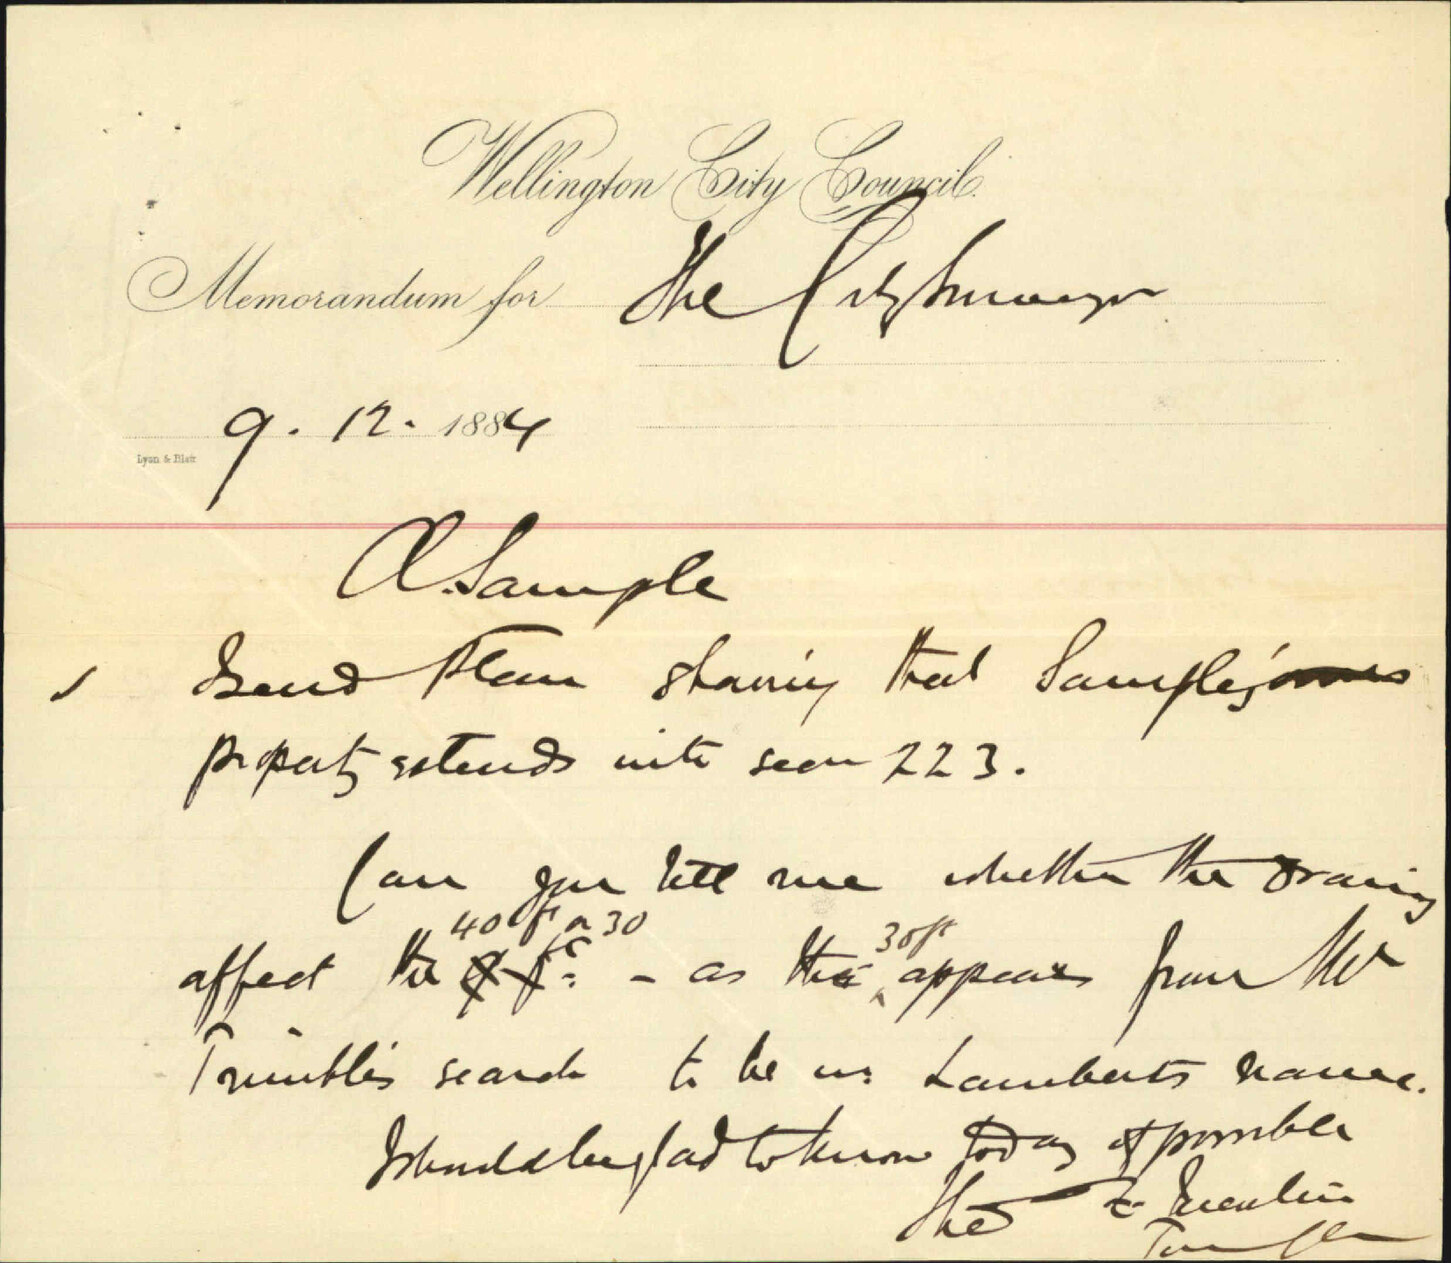 Wellington City Council.
Memorandum for The City Surveyor
9. 12. 1884
Lyon & Blair
A. Sample
Send Plan showing that Sample's
property extends into secn 223.
Can you tell me whether the drawing
40 ft or 30 30ft
affect the - as the appears from Mr
Trimble's search to be in Lamberts name.
I should be glad to know today if possible
The